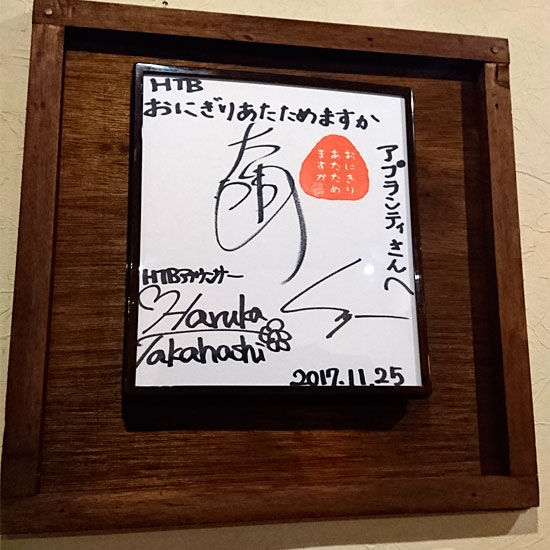 HTB
おにぎりあたためますか
おにぎり
あたため
ますか
アプランティさんへ
HTBアナウンサー
Haruka
Takahashi
2017.11.25